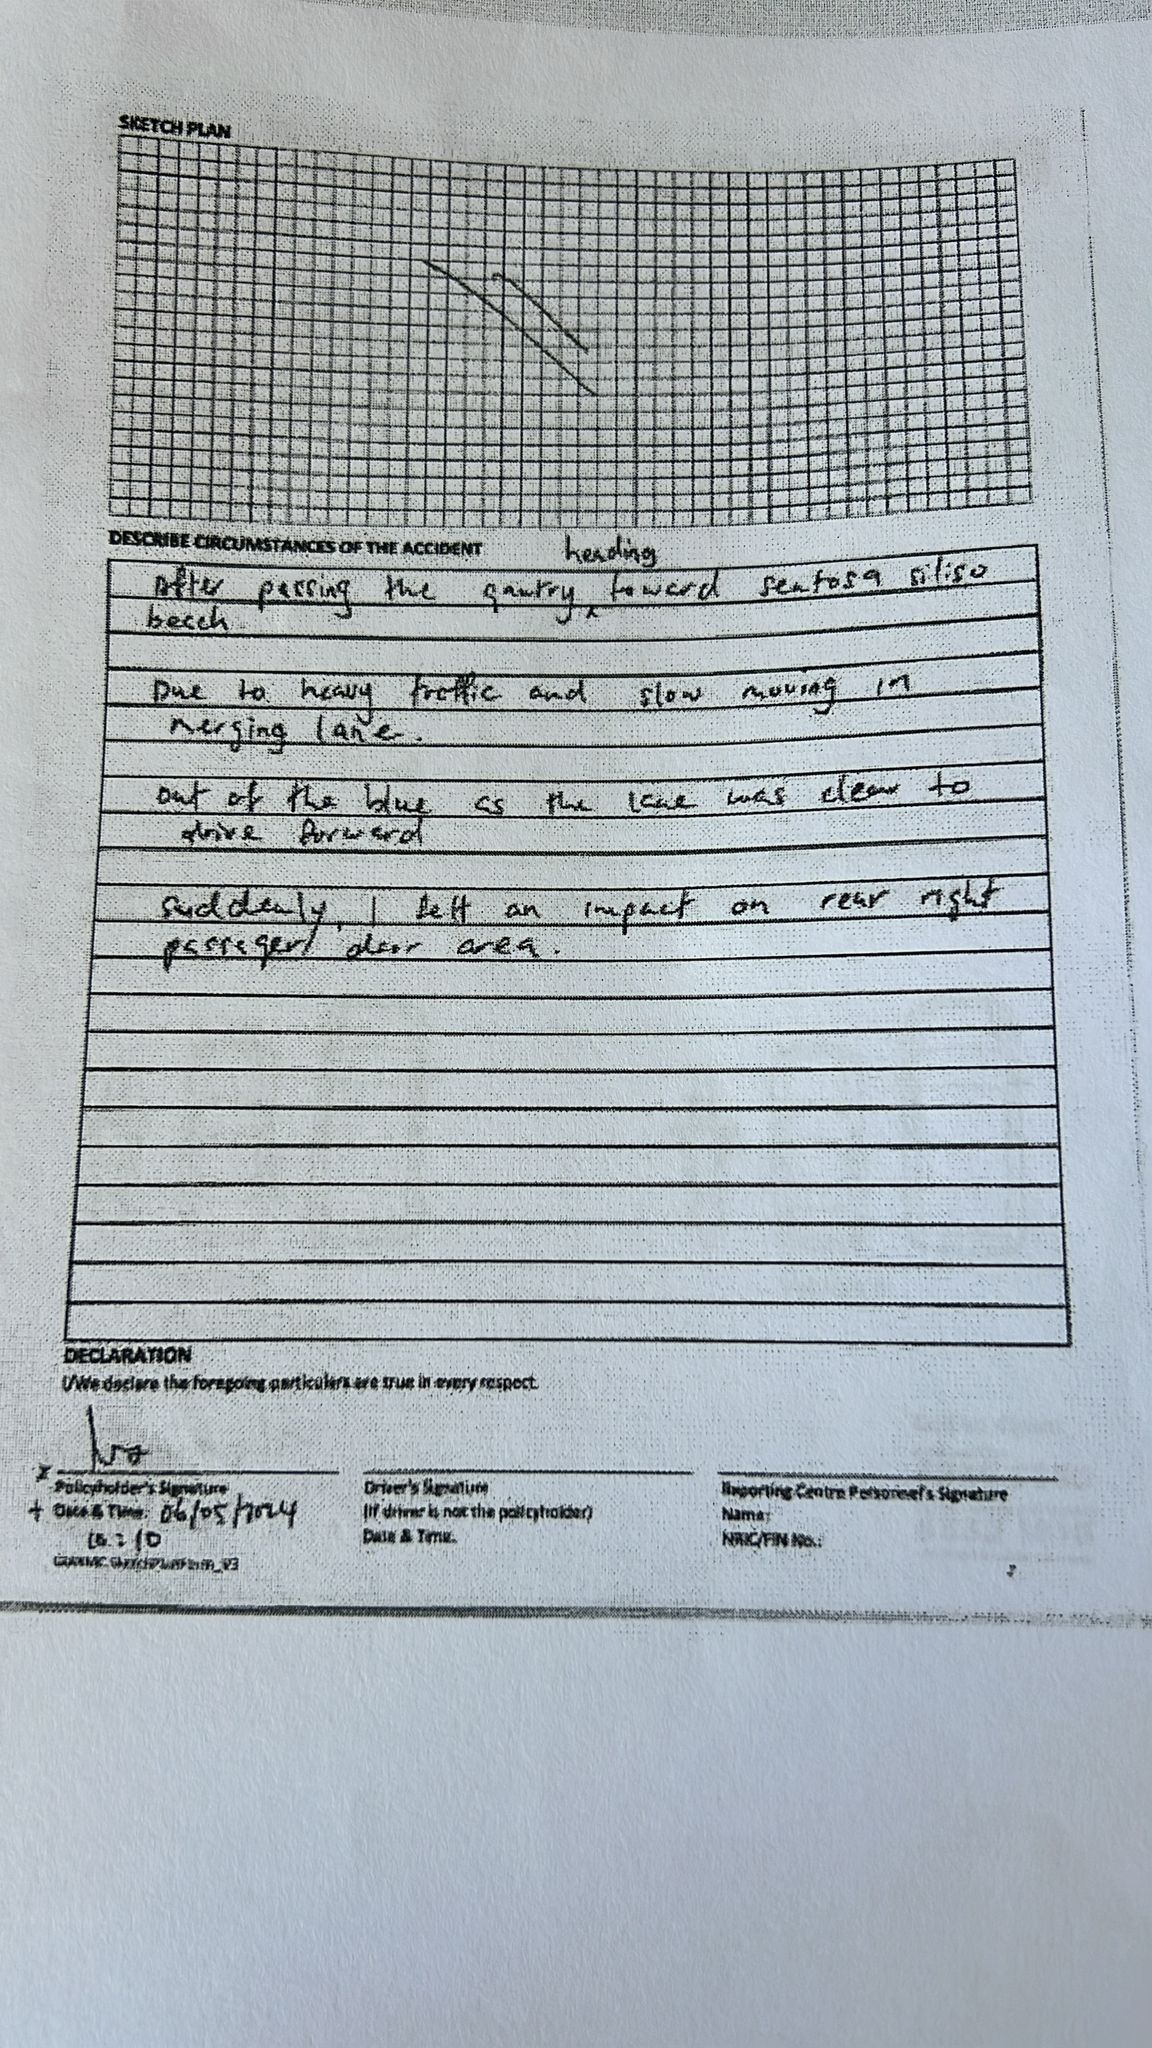 SKETCH PLAN
DESCRIBE CIRCUMSTANCES OF THE ACCIDENT
heading
After passing the gantry ^ toward sentosa siliso
beach
Due to heavy traffic and slow moving in
merging lane.
out of the blue as the lane was clear to
drive forward
suddenly, I felt an impact on rear right
passager door area.
DECLARATION
I/We declare the foregoing particulars are true in every respect.
x
Policyholder's Signature
+ Date & Time: 06/05/2024
Driver's Signature
(If driver is not the policyholder)
Date & Time:
Reporting Centre Personnel's Signature
Name:
NRIC/FIN No.: